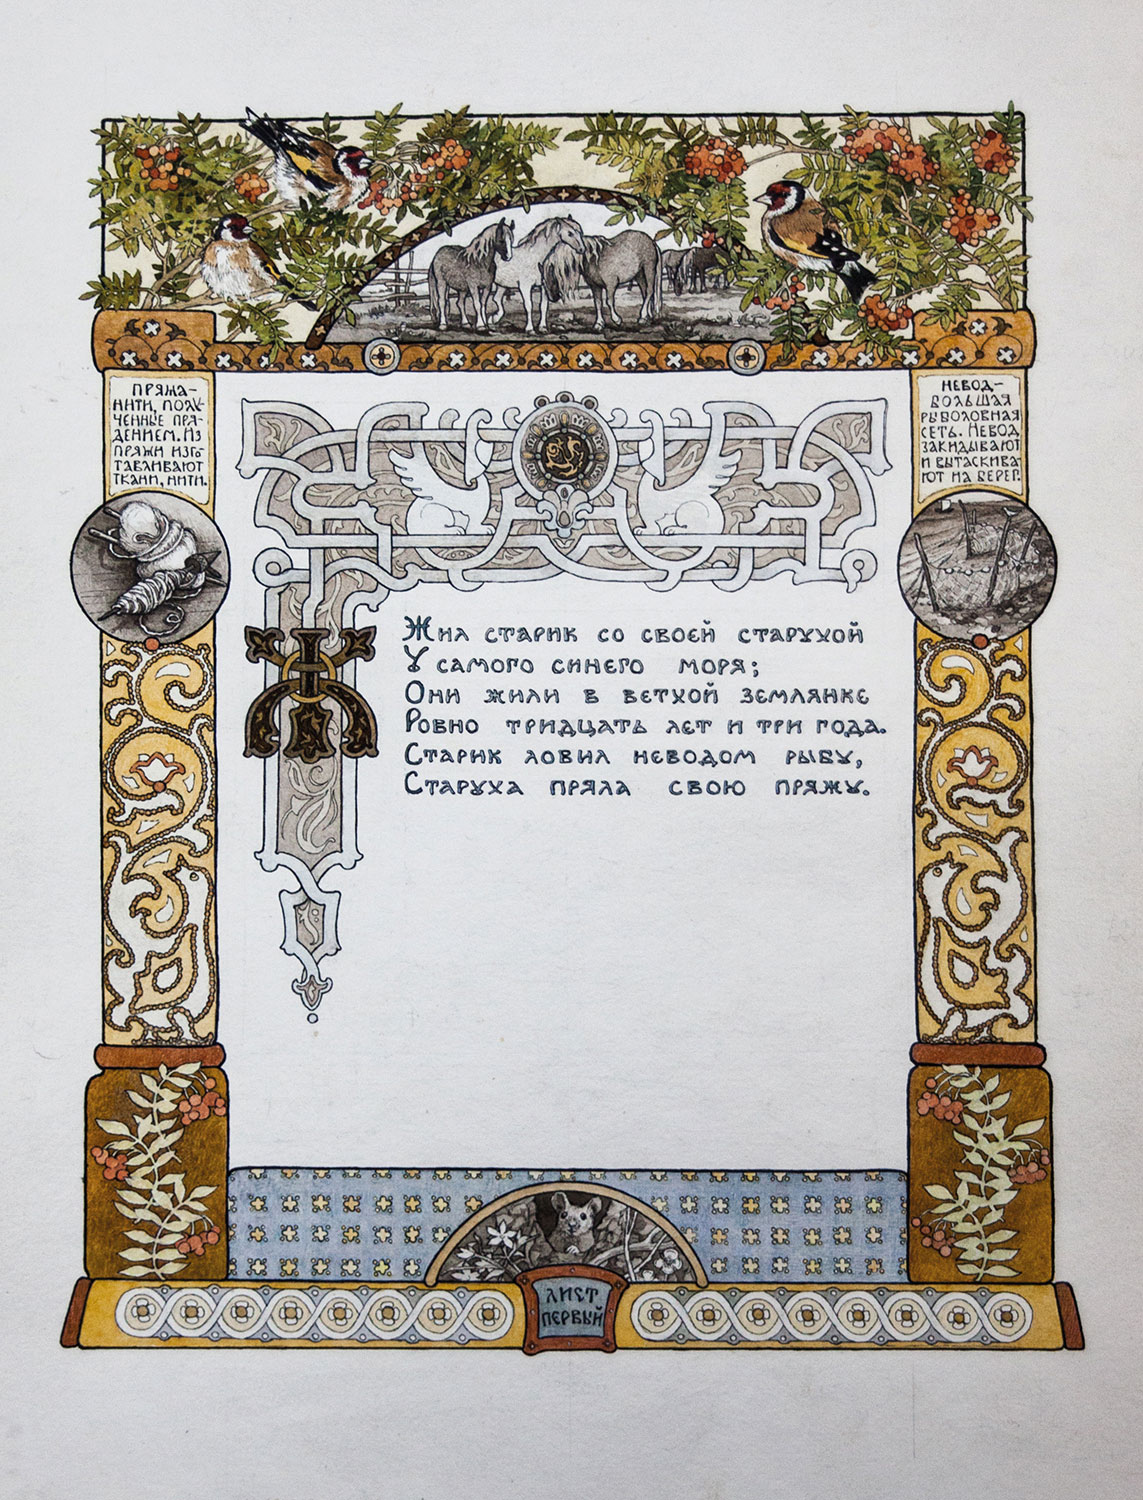 ПРЯЖА–
НИТИ, ПОЛУ
ЧЕННЫЕ ПРЯ-
ДЕНИЕМ. ИЗ
ПРЯЖИ ИЗГО
ТАВЛИВАЮТ
ТКАНИ, НИТИ.
НЕВОД–
БОЛЬШАЯ
РЫБОЛОВНАЯ
СЕТЬ. НЕВОД
ЗАКИДЫВАЮТ
И ВЫТАСКИВА
ЮТ НА БЕРЕГ.
ЖИЛ СТАРИК СО СВОЕЙ СТАРУХОЙ
У САМОГО СИНЕГО МОРЯ;
ОНИ ЖИЛИ В ВЕТХОЙ ЗЕМЛЯНКЕ
РОВНО ТРИДЦАТЬ ЛЕТ И ТРИ ГОДА.
СТАРИК ЛОВИЛ НЕВОДОМ РЫБУ,
СТАРУХА ПРЯЛА СВОЮ ПРЯЖУ.
ЛИСТ
ПЕРВЫЙ